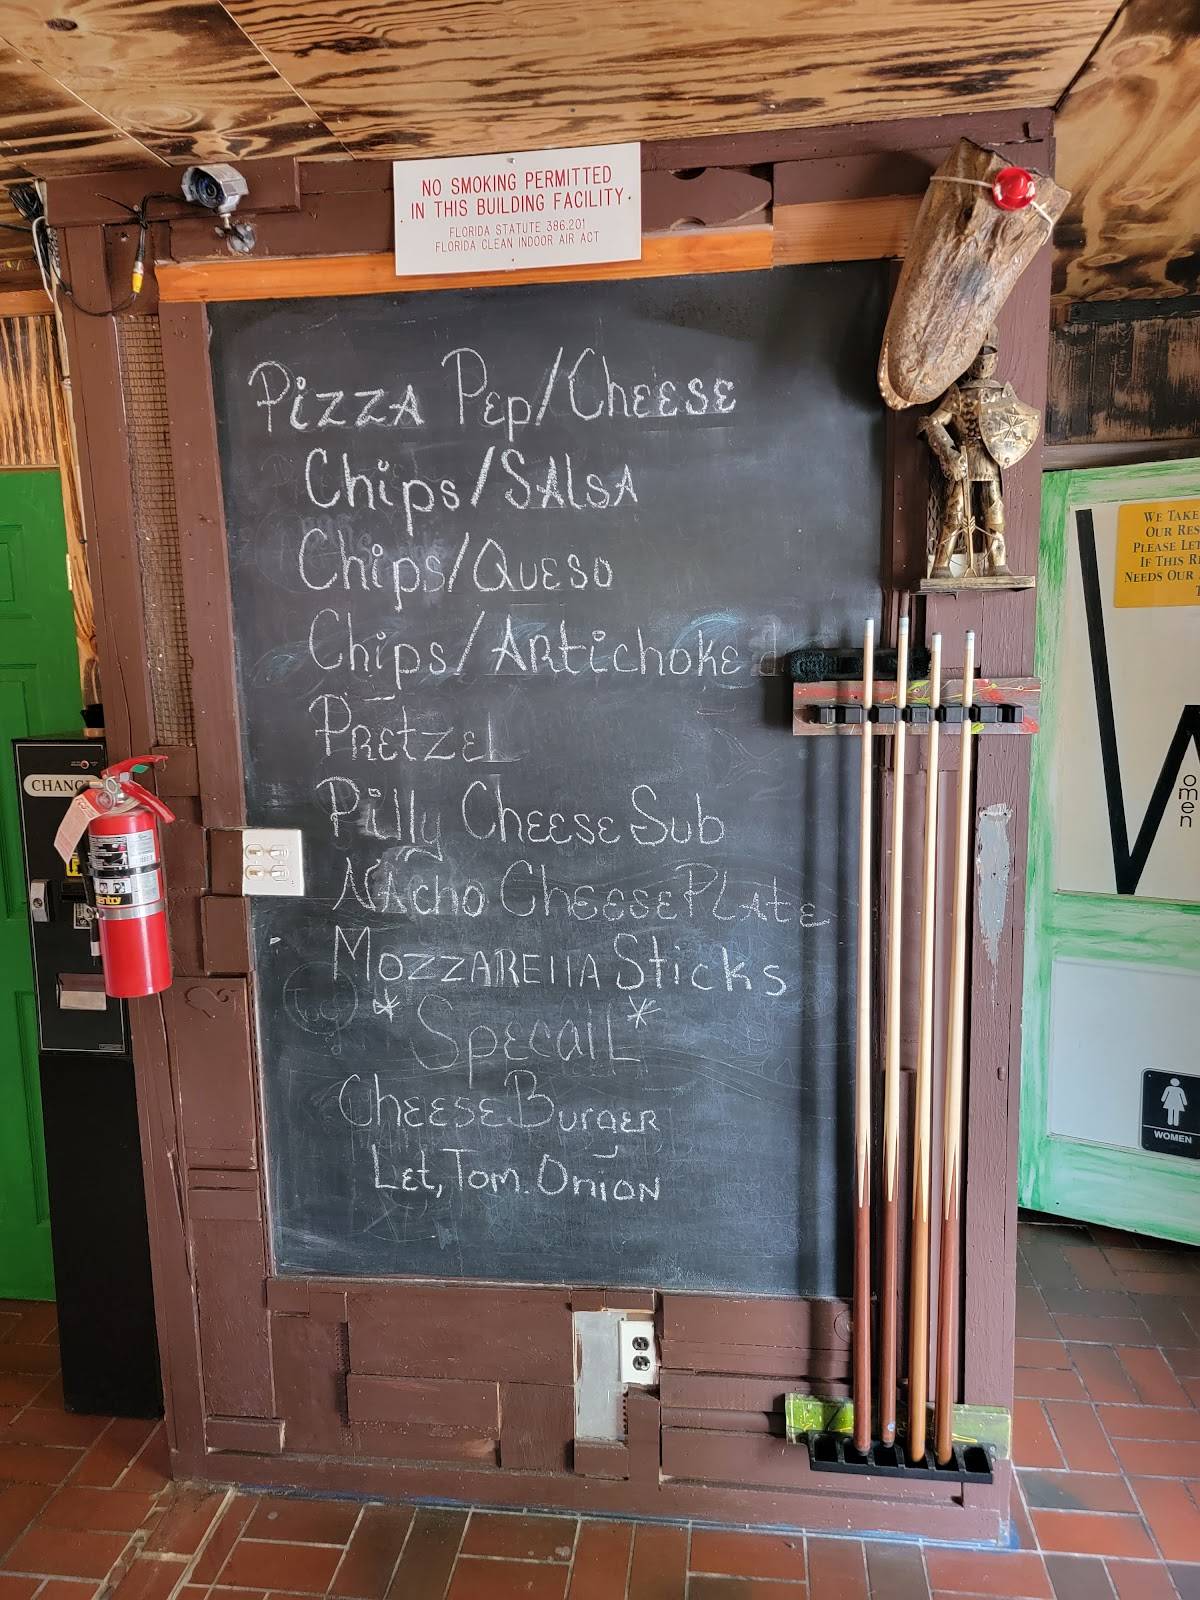 NO SMOKING PERMITTED
IN THIS BUILDING FACILITY
FLORIDA STATUTE 386.201
FLORIDA CLEAN INDOOR AIR ACT
Pizza Pep/Cheese
Chips/Salsa
Chips/Queso
Chips/Artichoke
Pretzel
Pilly Cheese Sub
Nacho Cheese Plate
Mozzarella Sticks
*Specail*
Cheese Burger
Let, Tom. Onion
CHANG
WE TAKE
OUR RES
PLEASE LET
IF THIS R
NEEDS OUR
Women
WOMEN